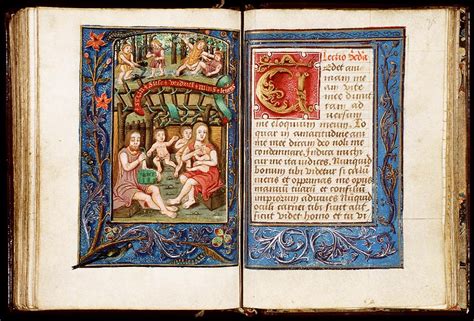 Lectio
T
edet ani
mam me
am vite
mee dimit
tam ad
versum
me eloquium meum. Lo
quar in amaritudine ani
me mee dicam deo noli me
condemnare. Indica michi
cur me ita iudices. Nunquid
bonum tibi videtur si calum
nieris et opprimas me opus
manuum tuarum et consilium
impiorum adiuves. Nunquid
oculi carnei tibi sunt aut
sicut videt homo et tu vi